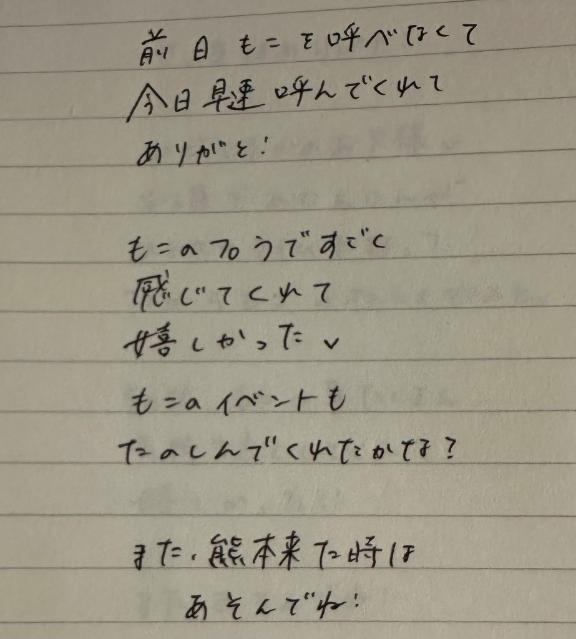 前日もこを呼べなくて
今日早速呼んでくれて
ありがと!
もこのフロうですごく
感じてくれて
嬉しかった
もこのイベントも
たのしんでくれたかな?
また、熊本来た時は
あそんでね!